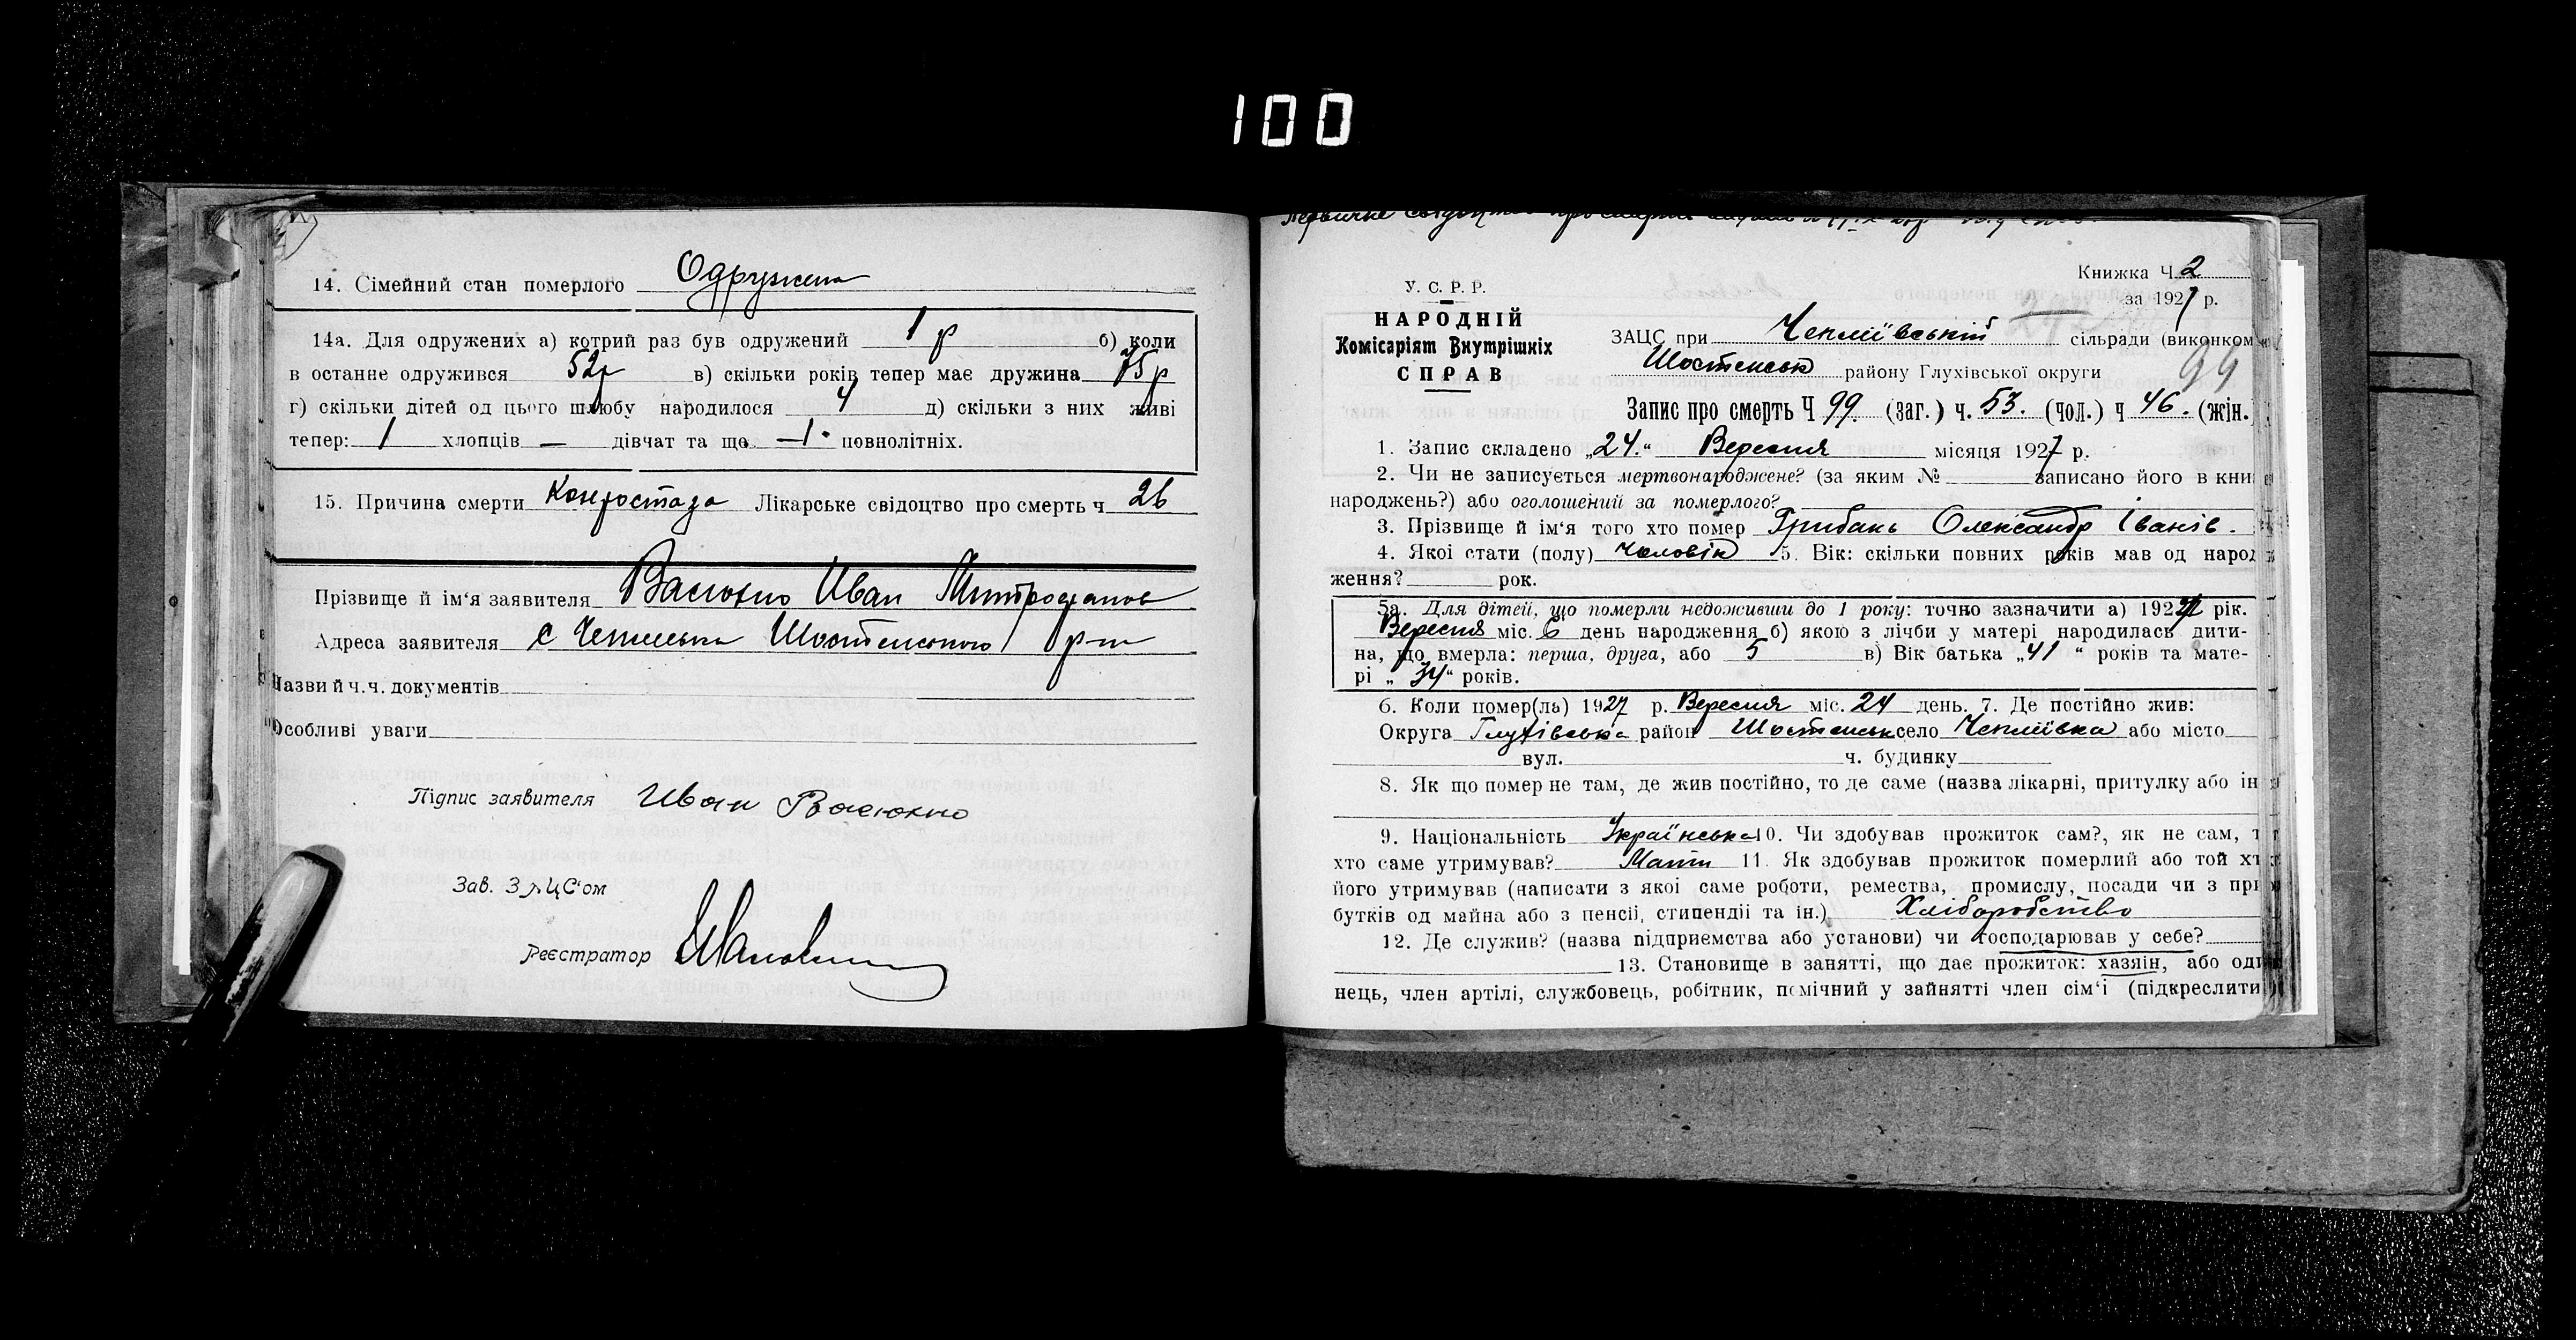 100
14. Сімейний стан померлого Одружена
14а. Для одружених а) котрий раз був одружений 1 р б) коли
в останнє одружився 52р в) скільки років тепер має дружина 75р
г) скільки дітей од цього шлюбу народилося 4 д) скільки з них живі
тепер: 1 хлопців — дівчат та ще —1· повнолітніх.
15. Причина смерти Лікарське свідоцтво про смерть ч 26
Прізвище й ім‘я заявителя Васюхно Иван Митрофанов
Адреса заявителя с Чепліевка Шостенского р-н
Назви й ч.ч. документів
Особливі уваги
Підпис заявителя Иван Васюхно
Зав. ЗАЦС‘ом
Реєстратор
Первичне про смерть
Книжка Ч. 2
за 1927 р.
У. С. Р. Р.
НАРОДНІЙ
Комісаріят Внутрішніх
СПРАВ
ЗАЦС при Чепліївській сільради (виконком
Шостенськ району Глухівської округи
99
Запис про смерть Ч 99. (заг.) ч. 53. (чол.) ч 46. (жін.
1. Запис складено „24.“ Вересня місяця 1927 р.
2. Чи не записується мертвонароджене? (за яким № записано його в кни
народжень?) або оголошений за померлого?
3. Прізвище й ім‘я того хто помер Грибань Олександр Іванів.
4. Якої стати (полу) Чоловік 5. Вік: скільки повних років мав од народ
ження? рок.
5а. Для дітей, що померли недоживши до 1 року: точно зазначити а) 1927 рік.
Вересня міс. 6 день народження б) якою з лічби у матері народилась дити-
на, що вмерла: перша, друга, або 5 в) Вік батька „41“ років та мате-
рі „34“ років.
6. Коли помер(ла) 1927 р. Вересня міс. 24 день. 7. Де постійно жив:
Округа Глухівська район Шостенськ село Чепліївка або місто
вул. ч. будинку
8. Як що помер не там, де жив постійно, то де саме (назва лікарні, притулку або ін
9. Національність Українська 10. Чи здобував прожиток сам?, як не сам, т
хто саме утримував? Мати 11. Як здобував прожиток померлий або той хт
його утримував (написати з якої саме роботи, ремества, промислу, посади чи з при
бутків од майна або з пенсії, стипендії та ін.) Хліборобство
12. Де служив? (назва підприємства або установи) чи господарював у себе?
13. Становище в занятті, що дає прожиток: хазяїн, або оди
нець, член артілі, службовець, робітник, помічний у зайнятті член сім‘ї (підкреслити